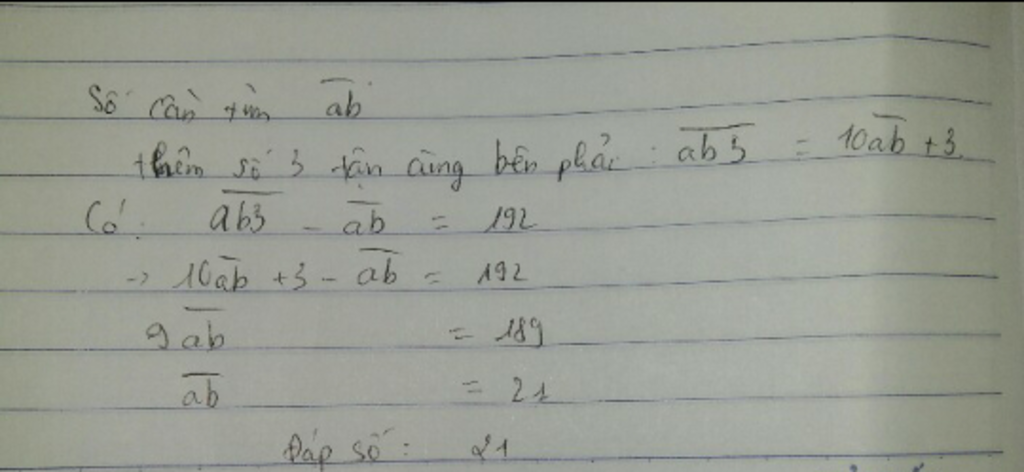 Số cần tìm \overline{ab}
thêm số 3 tận cùng bên phải : \overline{ab3} = 10\overline{ab} + 3.
Có : \overline{ab3} - \overline{ab} = 192
→ 10\overline{ab} + 3 - \overline{ab} = 192
9\overline{ab} = 189
\overline{ab} = 21
Đáp số : 21